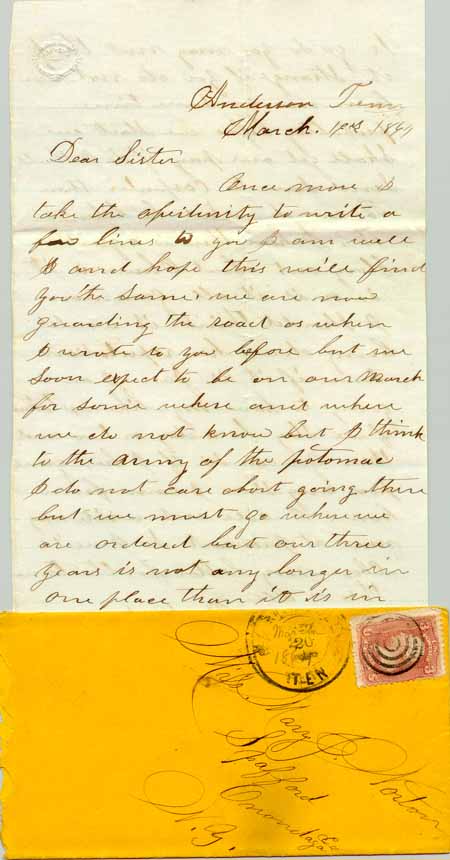 Anderson Tenn
March. 1864
Dear Sister
Once more I
take the opertinity to write a
few lines to you I am well
and hope this will find
you the same. we are now
guarding the road as when
I wrote to you before but we
soon expect to be on our March
for some where and where
we do not know but I think
to the army of the potomac
I do not care abort going there
but we must go where we
are ordered but our three
years is not any longer in
one place than it is in
Mar
20
TEN
Mary J. Norton
Spafford
Onondaga Co
N.Y.